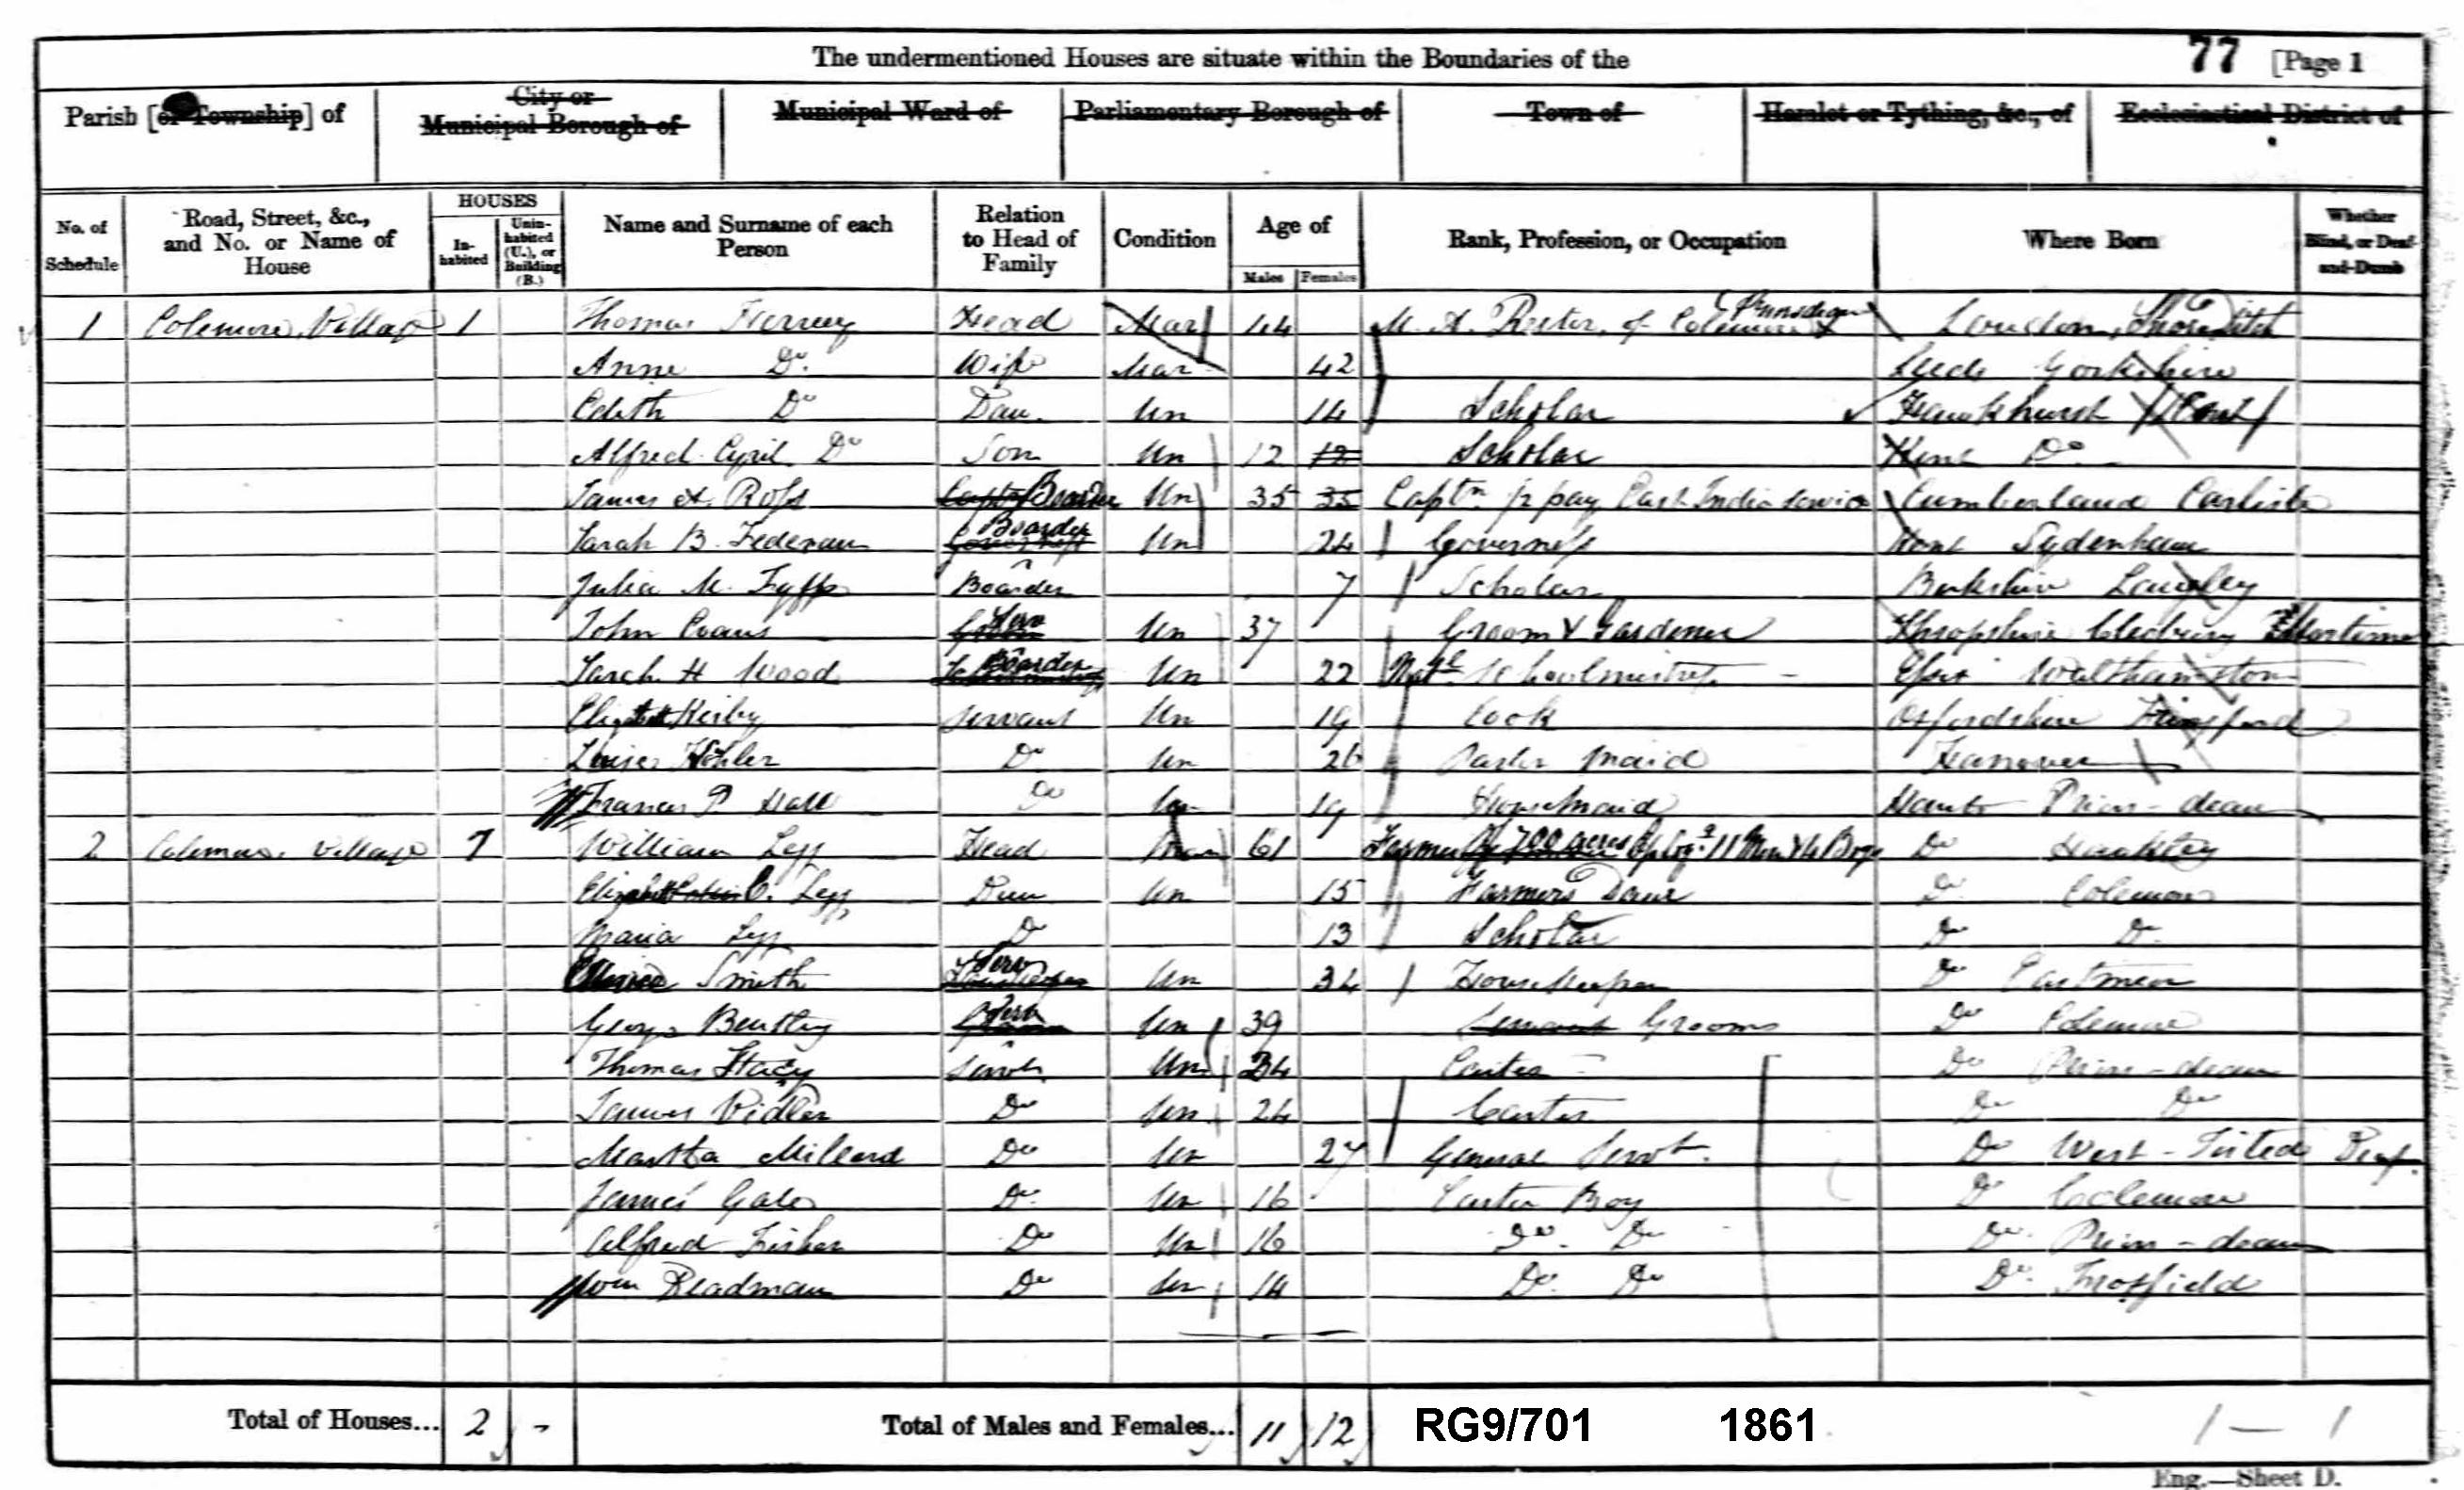 The undermentioned Houses are situate within the Boundaries of the 77 [Page 1
Parish [or Township] of City or Municipal Borough of Municipal Ward of Parliamentary Borough of Town of Hamlet or Tything, &c., of Ecclesiastical District of
No. of Schedule Road, Street, &c., and No. or Name of House HOUSES Inhabited Uninhabited (U.), or Building (B.) Name and Surname of each Person Relation to Head of Family Condition Age of Males Females Rank, Profession, or Occupation Where Born Whether Blind, or Deaf-and-Dumb
1 Colemore Village 1 Thomas Head Mar 44 M. A. Rector of Colemore & London, Shoreditch
Anne Do. Wife Mar 42 Leeds Yorkshire
Edith Do Dau. Un 14 Scholar Hawkhurst Kent
Alfred Cyril Do Son Un 12 12 Scholar Kent Do.
James A. Ross Boarder Un 35 35 Captn ½ pay East India service Cumberland Carlisle
Sarah B. Boarder Un 24 Governess Kent Sydenham
Julia M. Boarder 7 Scholar Berkshire Langley
John Evans Groom Serv Un 37 Groom & Gardener Shropshire Cleobury Mortimer
Sarah H Wood Boarder Un 22 Natl Schoolmistress Essex Walthamston
Elizabeth Kirby Servant Un 19 Cook Oxfordshire
Louisa Köhler Do Un 26 Parlor Maid Hanover
Frances P. Hall Do Un 19 Housemaid Hants Priors-dean
2 Colemore Village 1 William Legg Head 61 Farmer of 700 acres 11 Men & 4 Boys Do Hawkley
C. Legg Dau Un 15 Farmers Daur Do Colemore
Maria Legg Do 13 Scholar Do Do
Smith Housekeeper Serv Un 34 Housekeeper Do Eastmeon
George Serv Un 39 Servant Grooms Do Colemore
Thomas Stacy Servt Un 34 Carter Do Priors-dean
James Vidler Do Un 24 Carter Do Do
Martha Millard Do Un 27 General Servt. Do West-Tisted Deaf.
James Gale Do. Un 16 Carter Boy Do Colemore
Alfred Fisher Do Un 16 Do. Do Do. Priors-dean
Wm Readman Do Un 14 Do. Do Do. Froxfield
Total of Houses... 2 - Total of Males and Females... 11 12 RG9/701 1861 1 — 1
Eng.—Sheet D.